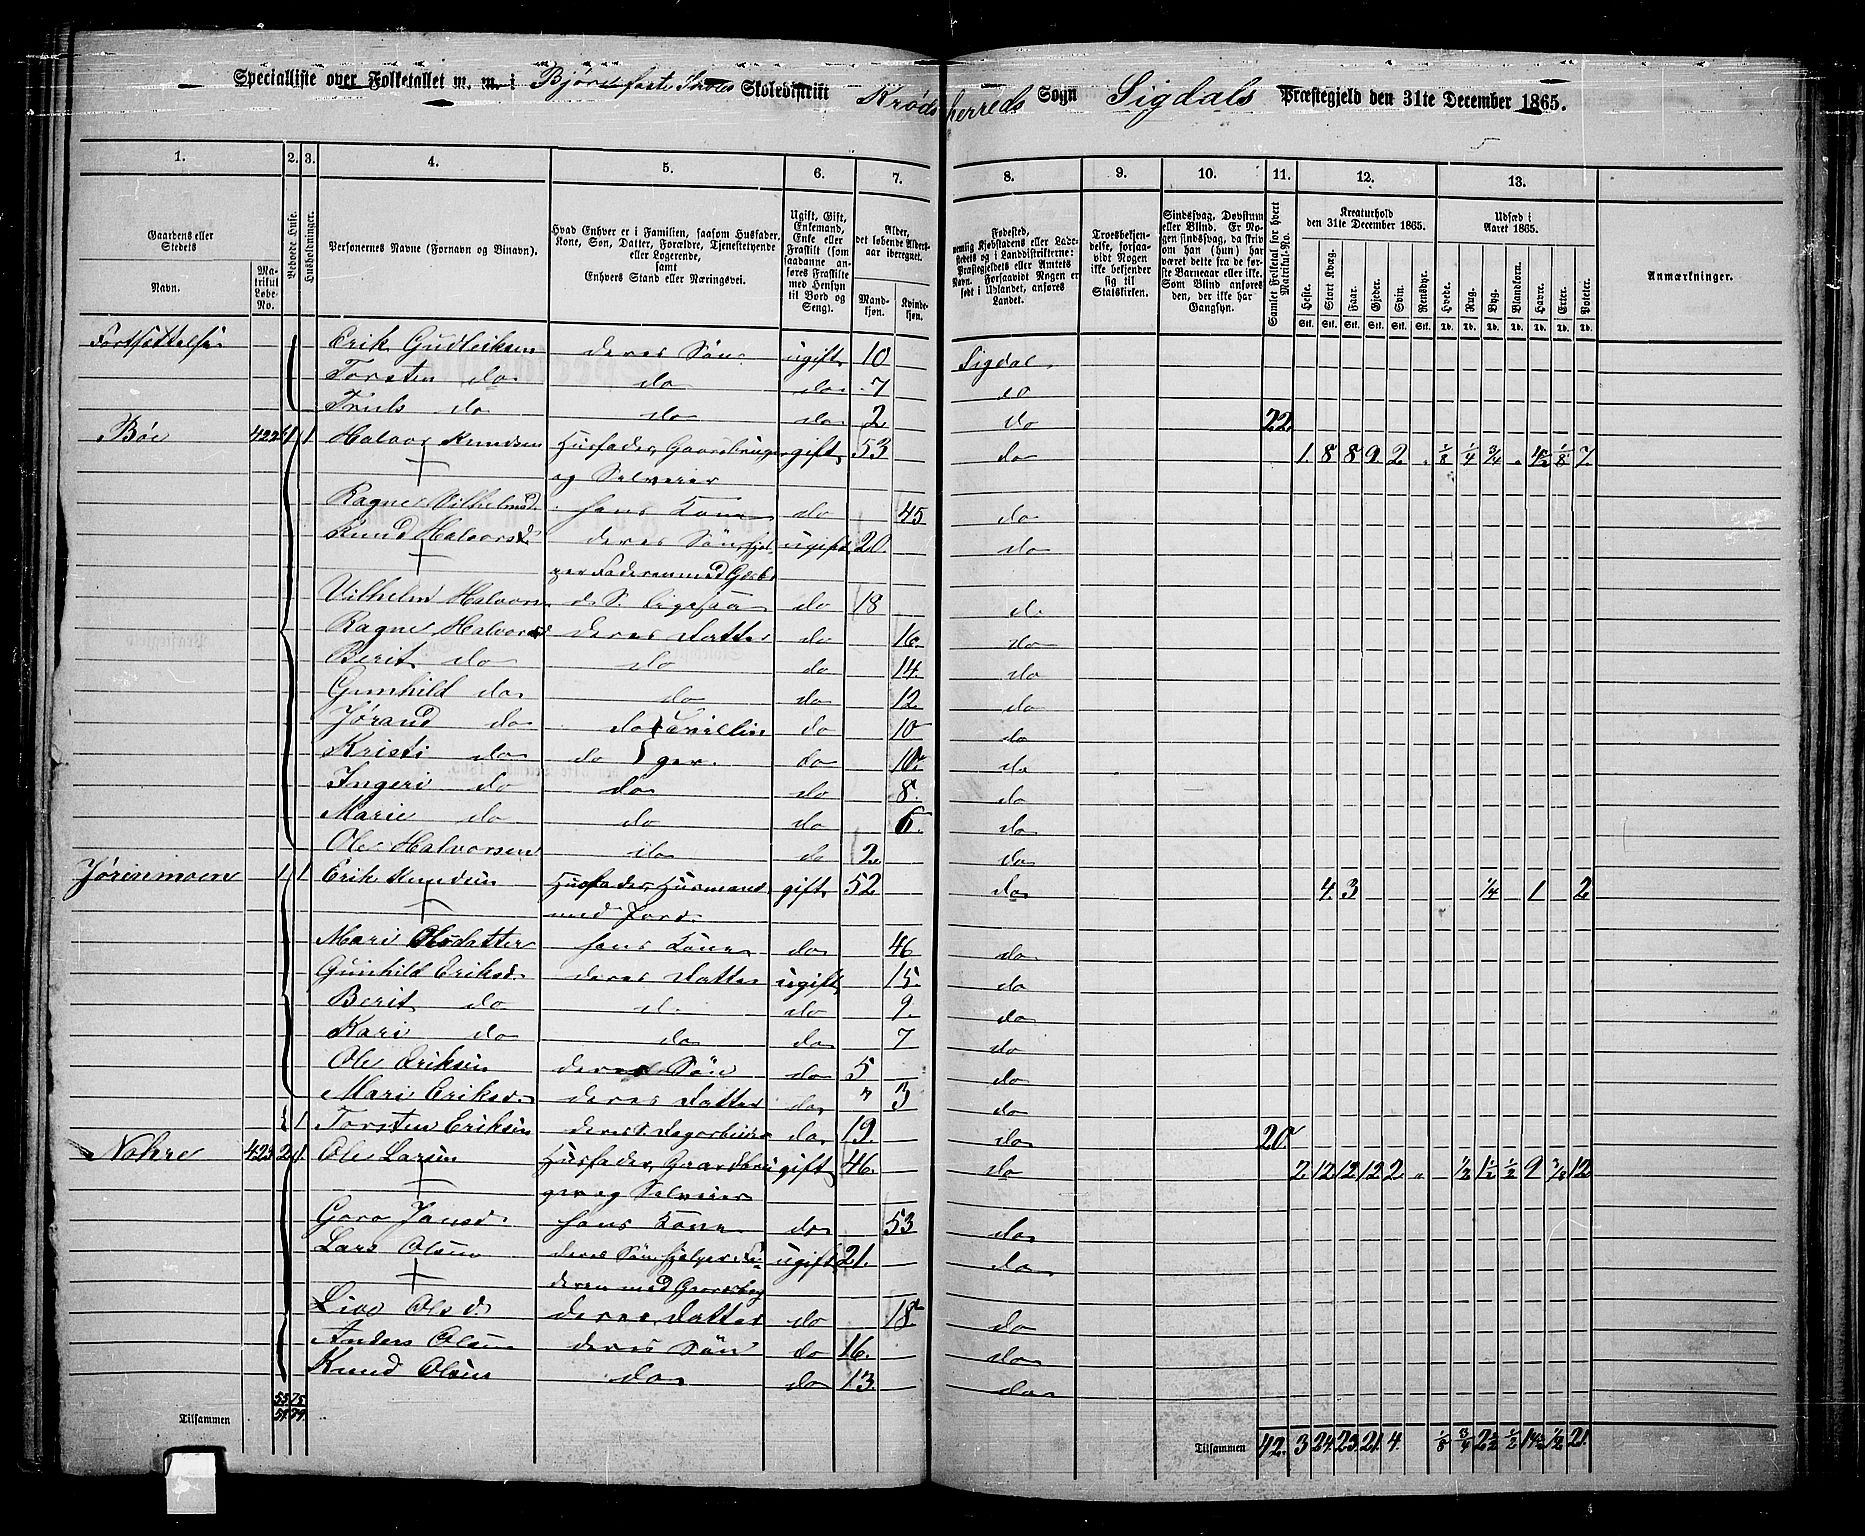 Specialliste over Folketallet m. m. i Skoledistrikt Krødsherreds Sogn Sigdals Præstegjeld den 31te December 1865.
5
1. 2. 3. 4. 5. 6. 7. 8. 9. 10. 11. 12. 13.
Gaardens eller Stedets
Navn.
Matrikul Løbe-No.
Beboede Huse.
Husholdninger.
Personernes Navne (Fornavn og Binavn).
Hvad Enhver er i Familien, saasom Husfader, Kone, Søn, Datter, Forældre, Tjenestetyende eller Logerende, samt Enhvers Stand eller Næringsvei.
Ugift, Gift, Enkemand, Enke eller Fraskilt (som saadanne anføres Fraskilte med Hensyn til Bord og Seng).
Alder, det løbende Aldersaar iberegnet.
Mandkjøn. Kvindekjøn.
Fødested,
Troesbekjendelse, forsaavidt Nogen ikke bekjender sig til Statskirken.
Sindssvag, Døvstum eller Blind. Er Nogen sindssvag, da skrives om han (hun) har været dette fra de første Barneaar eller ikke. Som Blind anføres den, der ikke har Gangsyn.
Samlet Folketal for hvert Matrikul-No.
Kreaturhold den 31te December 1865.
Heste. Stort Kvæg. Faar. Gjeder. Svin. Rensdyr.
Udsæd i Aaret 1865.
Hvede. Rug. Byg. Blandkorn. Havre. Erter. Poteter.
Anmærkninger.
Fortsættelse Erik Gudleiksen deres Søn ugift 10 Sigdal
Torsten do do do 7 do
Truls do do do 2 do 22
Böe 422 1 1 Halvor Knudsen Husfader, Gaardbruger gift 53 do 1 8 8 9 2 1/8 1/4 3/4 4½ 1/8 7
og Selveier
Ragne Vilhelmsd. hans Kone do 45 do
Knud Halvors. deres Søn, hjæl- ugift 20 do
per Faderen med Gdsbr
Vilhelm Halvors. d. S. ligesaa do 18 do
Ragne Halvorsd deres Datter do 16 do
Berit do do do 14 do
Gunhild do do do 12 do
Jørand do do Tvillin do 10 do
Kristi do do ger. do 10 do
Ingeri do do do 8 do
Marie do do do 6 do
Ole Halvorsen do do 2 do
Jørenmoen 1 1 Erik Knudsen Husfader, Husmand gift 52 do 4 3 1/4 1 2
med Jord.
Mari Olsdatter hans Kone do 46 do
Gunhild Eriksd. deres Datter ugift 15 do
Berit do d. do 9 do
Kari do do do 7 do
Ole Eriksen deres Søn do 5 do
Mari Eriksd. deres Datter do 3 do
1 Torsten Eriksen deres S. Dagarbeider do 19 do 20
Nokre 423 2 1 Ole Larsen Husfader, Gaardbru gift 46 do 2 12 12 12 2 1/2 1½ 1/2 9 3/8 12
ger og Selveier
Goro Jansd. hans Kone do 53 do
Lars Olsen deres Søn hjelper Fa- ugift 21 do
deren med Gaardsbrug
Live Olsd. deres Datter do 18 do
Anders Olsen deres Søn do 16 do
Knud Olsen do do 13 do
Tilsammen
Tilsammen 42 3 24 23 21 4 1/8 3/4 1/2 1/2 21